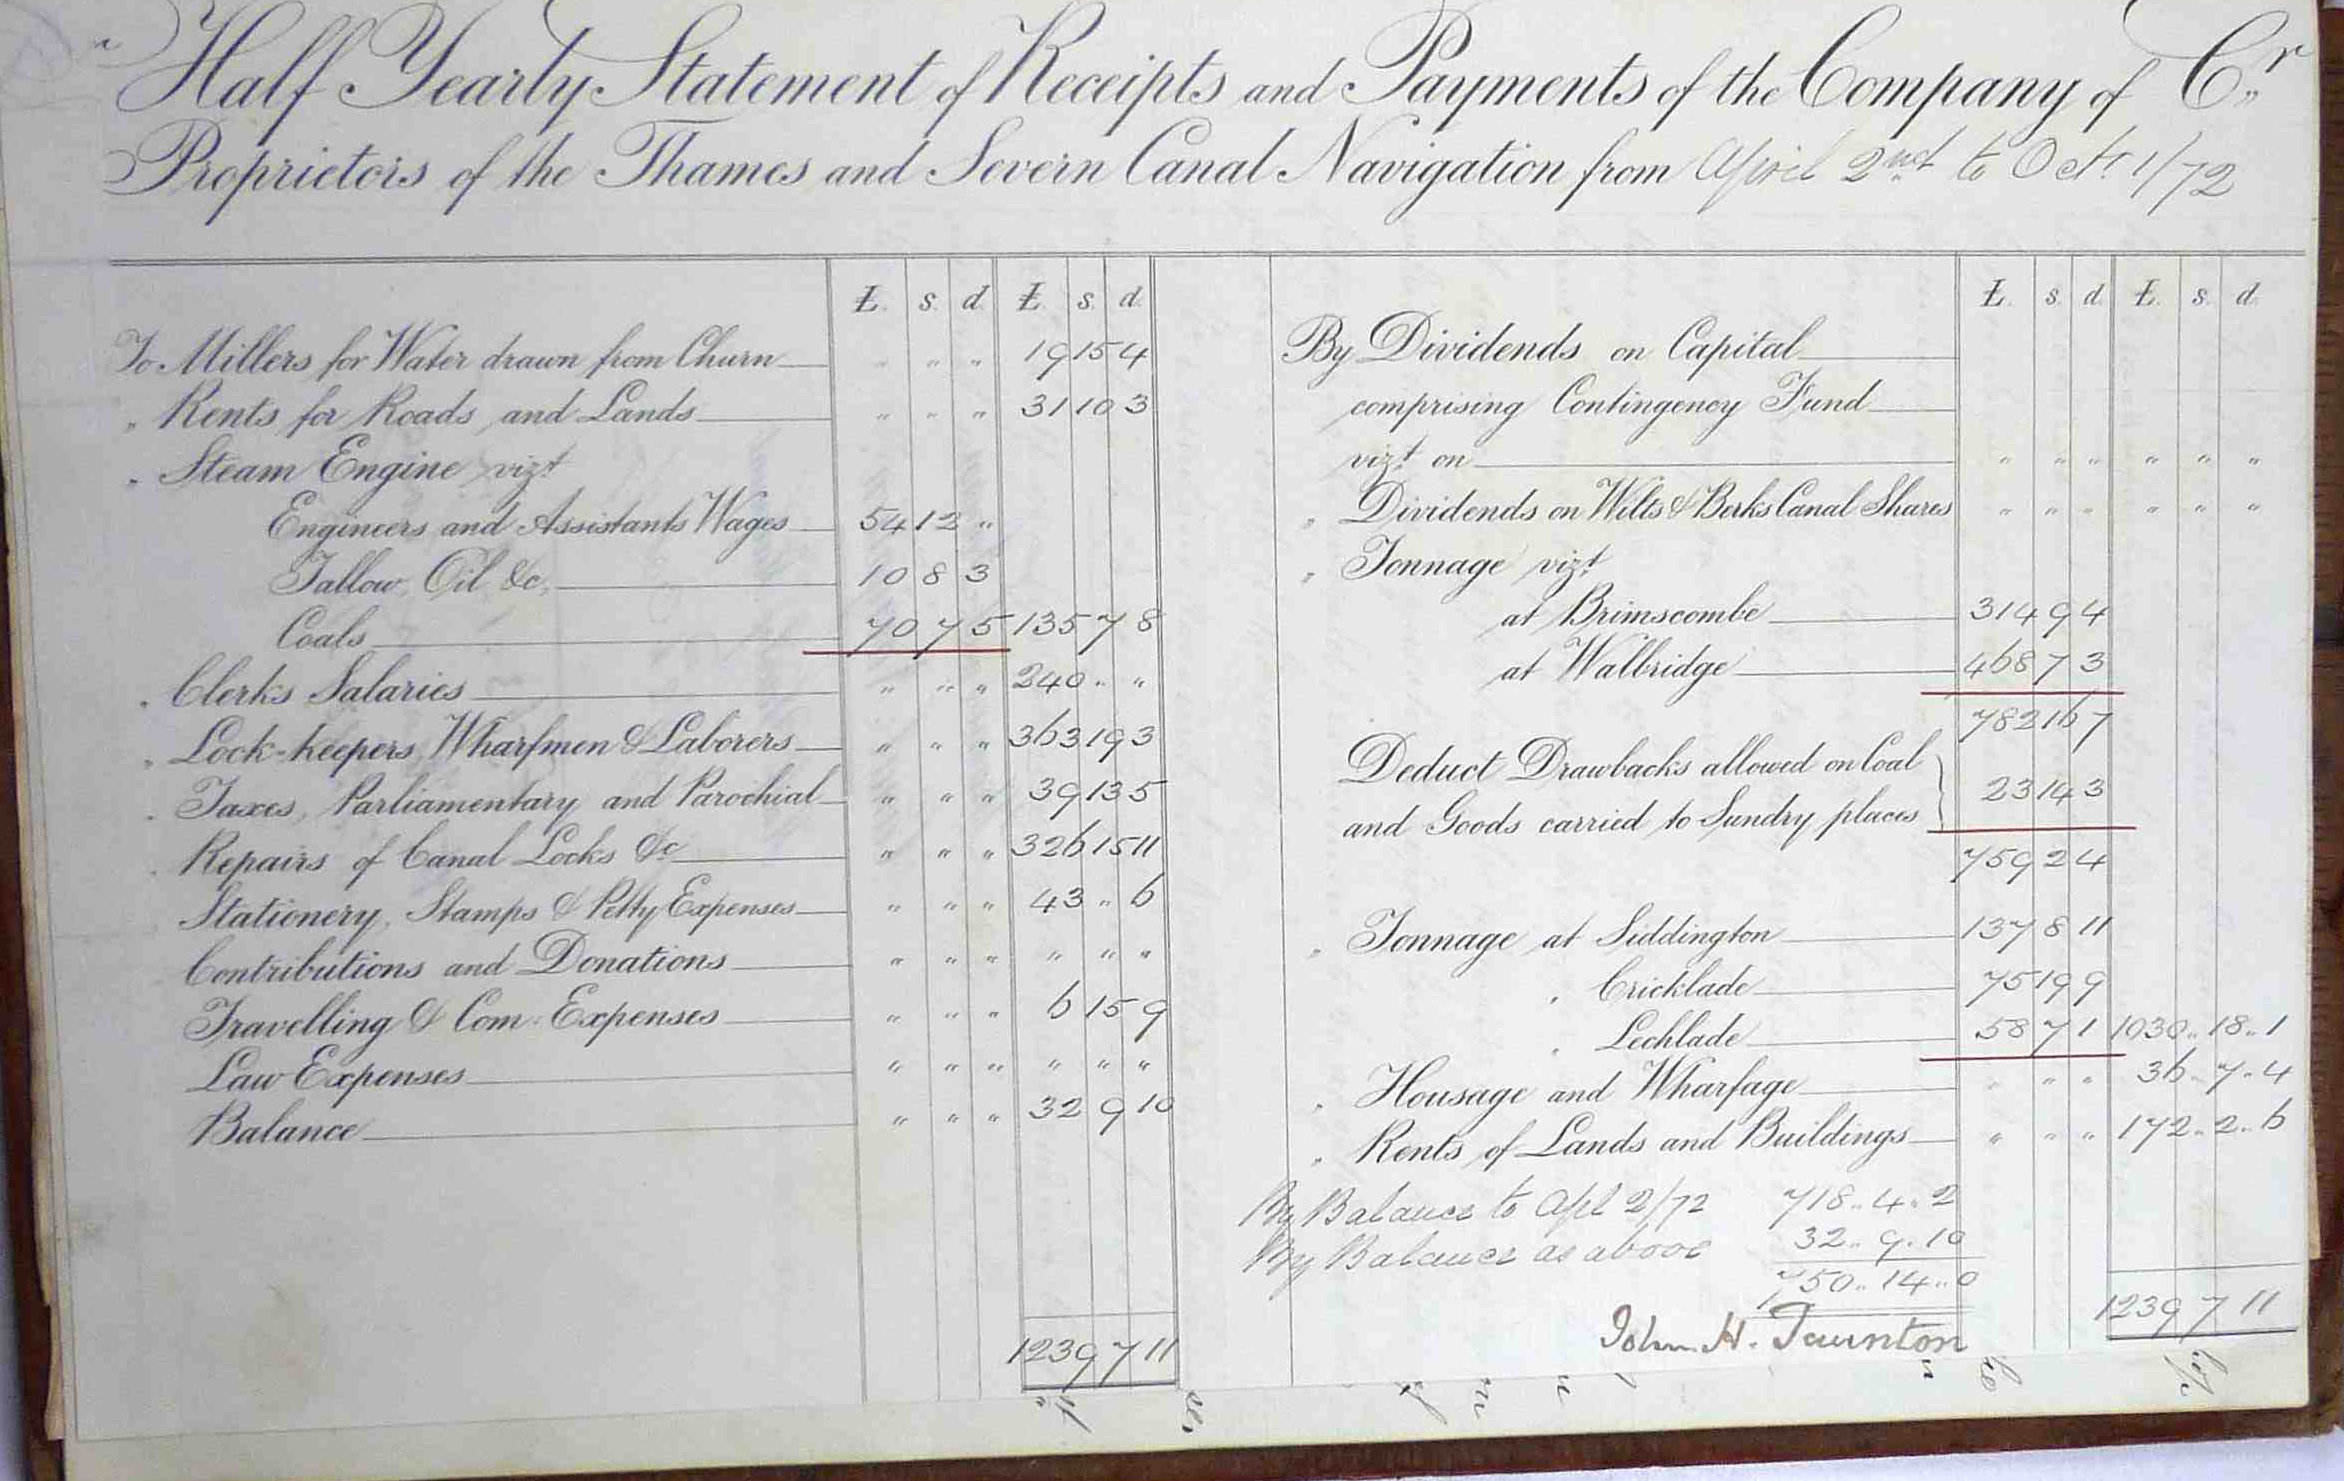 Half Yearly Statement of Receipts and Payments of the Company of Cr
Proprietors of the Thames and Severn Canal Navigation from April 2nd to Oct. 1/72
£. s. d. £. s. d.
To Millers for Water drawn from Churn " " " 19 15 4
" Rents for Roads and Lands " " " 31 10 3
" Steam Engine vizt
Engineers and Assistants Wages 54 12 "
Tallow, Oil &c. 10 8 3
Coals 70 7 5 135 7 8
" Clerks Salaries " " " 240 " "
" Lock-keepers, Wharfmen & Laborers " " " 363 19 3
" Taxes, Parliamentary and Parochial " " " 39 13 5
" Repairs of Canal Locks &c " " " 326 15 11
Stationery, Stamps & Petty Expenses " " " 43 " 6
Contributions and Donations " " " " " "
Travelling & Com. Expenses " " " 6 15 9
Law Expenses " " " " " "
Balance " " " 32 9 10
1239 7 11
£. s. d. £. s. d.
By Dividends on Capital
comprising Contingency Fund
vizt. on " " " " " "
" Dividends on Wilts & Berks Canal Shares " " " " " "
" Tonnage vizt.
at Brimscombe 314 9 4
at Walbridge 468 7 3
782 16 7
Deduct Drawbacks allowed on Coal
and Goods carried to Sundry places 23 14 3
759 2 4
" Tonnage at Siddington 137 8 11
" Cricklade 75 19 9
" Lechlade 58 7 1 1030 " 18 " 1
" Housage and Wharfage " " " 36 " 7 " 4
" Rents of Lands and Buildings " " " 172 " 2 " 6
By Balance to Apl 2/72 718 " 4 " 2
By Balance as above 32 " 9 " 10
750 " 14 " 0
John H. Taunton
1239 7 11